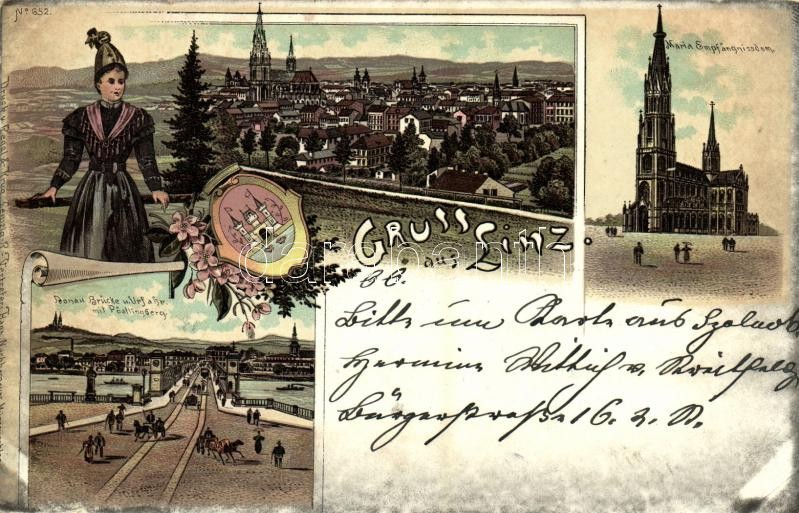 No 652.
Maria Empfängnissdom.
GRUSS
aus LINZ.
Donau Brücke u. Urfahr
mit Pöstlingberg.
Bitte um Karte aus Szolnok
Hermine Wittich v. Streitfeld
Bürgerstraße 16. 2. St.
darabanth.com